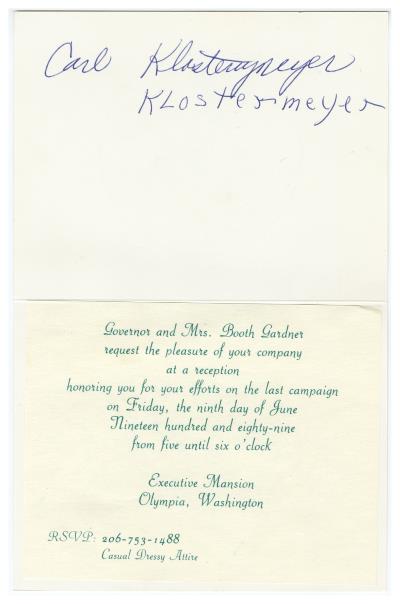 Carl Klostermeyer
Klostermeyer
Governor and Mrs. Booth Gardner
request the pleasure of your company
at a reception
honoring you for your efforts on the last campaign
on Friday, the ninth day of June
Nineteen hundred and eighty-nine
from five until six o'clock
Executive Mansion
Olympia, Washington
RSVP: 206-753-1488
Casual Dressy Attire